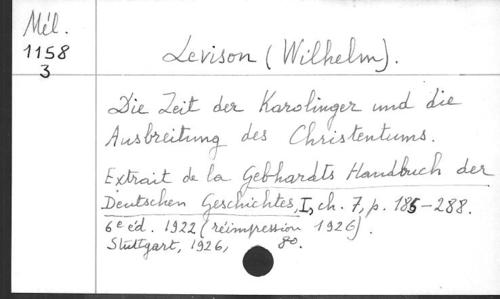 Mél.
1158
3
Levison (Wilhelm).
Die Zeit der Karolinger und die
Ausbreitung des Christentums.
Extrait de la Gebhardts Handbuch der
Deutschen Geschichtes, I, ch. 7, p. 185-288.
6e éd. 1922 (réimpression 1926).
Stuttgart, 1926, 8o.